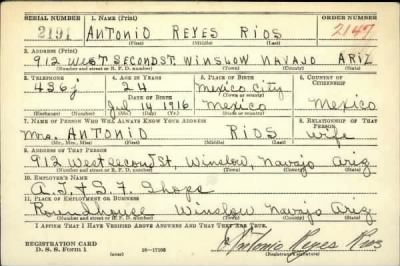 SERIAL NUMBER 1. NAME (Print) ORDER NUMBER
2191 ANTONIO REYES RIOS 2147
(First) (Middle) (Last)
2. ADDRESS (Print)
912 WEST SECOND ST. WINSLOW NAVAJO ARIZ
(Number and street or R. F. D. number) (Town) (County) (State)
3. TELEPHONE 4. AGE IN YEARS 5. PLACE OF BIRTH 6. COUNTRY OF CITIZENSHIP
436J 24 Mexico City
DATE OF BIRTH (Town or county)
Jul 14 1916 Mexico Mexico
(Exchange) (Number) (Mo.) (Day) (Yr.) (State or country)
7. NAME OF PERSON WHO WILL ALWAYS KNOW YOUR ADDRESS 8. RELATIONSHIP OF THAT PERSON
Mrs. ANTONIO RIOS wife
(Mr., Mrs., Miss) (First) (Middle) (Last)
9. ADDRESS OF THAT PERSON
912 West second St, Winslow, Navajo Ariz
(Number and street or R. F. D. number) (Town) (County) (State)
10. EMPLOYER'S NAME
A.T. & S.F. Shops
11. PLACE OF EMPLOYMENT OR BUSINESS
Roundhouse Winslow Navajo Ariz
(Number and street or R. F. D. number) (Town) (County) (State)
I AFFIRM THAT I HAVE VERIFIED ABOVE ANSWERS AND THAT THEY ARE TRUE.
REGISTRATION CARD
D. S. S. Form 1 (over) 16-17105 Antonio Reyes Rios
(Registrant's signature)